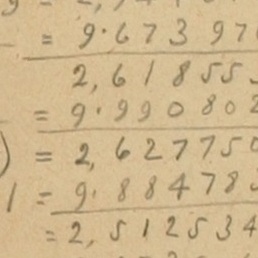 = 9.67397
2,61855
= 9.990802
= 2,627750
1 = 9.88478
= 2,512534